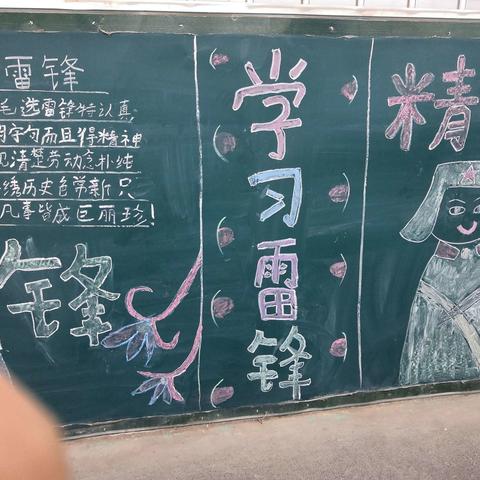 雷锋
毛选雷锋特认真
字句而且得精神
清楚劳动念朴纯
绣历史色常新只
凡事皆成巨丽珍!
锋
学习雷锋
精